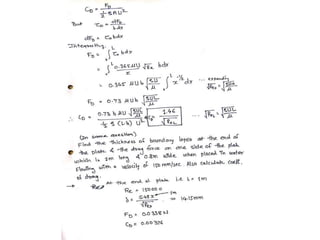 C_D = F_D / ½ρAU²
But τ₀ = dF_D / bdx
dF_D = τ₀ bdx
Integrating,
F_D = ∫₀ᴸ τ₀ bdx
= ∫₀ᴸ 0.365 μU / x √Rex bdx
= 0.365 μUb √(ρU/μ) ∫₀ᴸ x^-½ dx
F_D = 0.73 μUb √(ρUL/μ)
∴ C_D = 0.73 b μU √(ρUL/μ) / ½ ρ (Lb) U² = 1.46 / √ReL
√ReL = √(ρUL/μ)
Find the thickness of boundary layer at the end of
the plate & the drag force on one side of the plate
which is 1m long & 0.8m wide when placed in water
flowing with a velocity of 150mm/sec. Also calculate coeff.
of drag.
At the end of plate i.e. L = 1m
Re = 150000
= 14.15mm
F_D = 0.0338 N
C_D = 0.00376